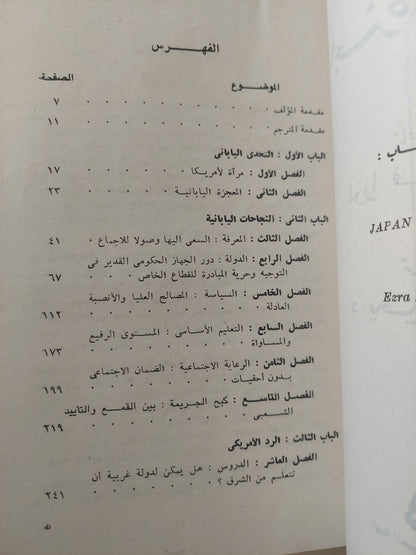 الفهرس
الموضوع الصفحة
مقدمة المؤلف ٧
مقدمة المترجم ١١
الباب الأول : التحدى اليابانى
الفصل الأول : مرآة لأمريكا ١٧
الفصل الثانى : المعجزة اليابانية ٢٣
الباب الثانى : النجاحات اليابانية
الفصل الثالث : المعرفة : السعى اليها وصولا للاجماع ٤١
الفصل الرابع : الدولة : دور الجهاز الحكومى القدير فى
التوجيه وحرية المبادرة للقطاع الخاص ٦٧
الفصل الخامس : السياسة : المصالح العليا والأنصبة
العادلة ١١٢
الفصل السابع : التعليم الأساسى : المستوى الرفيع
والمساواة ١٧٣
الفصل الثامن : الرعاية الاجتماعية : الضمان الاجتماعى
بدون أحقيات ١٩٩
الفصل التاسع : كبح الجريمة : بين القمع والتأييد
الشعبى ٢١٩
الباب الثالث : الرد الأمريكى
الفصل العاشر : الدروس : هل يمكن لدولة غربية أن
تتعلم من الشرق ؟ ٢٤١
٥
اب :
JAPAN
Ezra